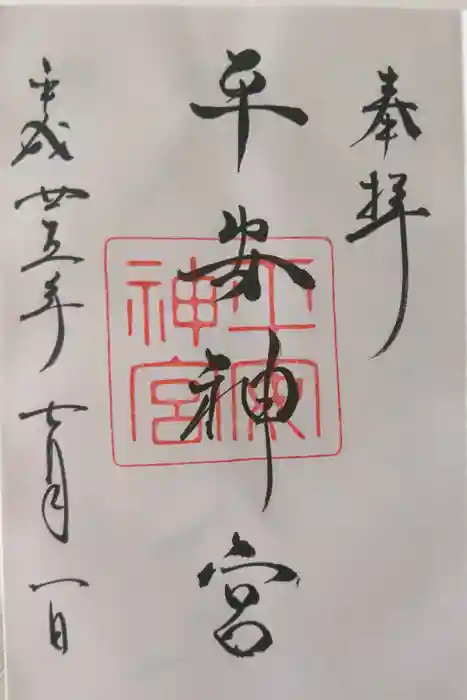 奉拝
平安神宮
平安
神宮
平成廿五年七月一日